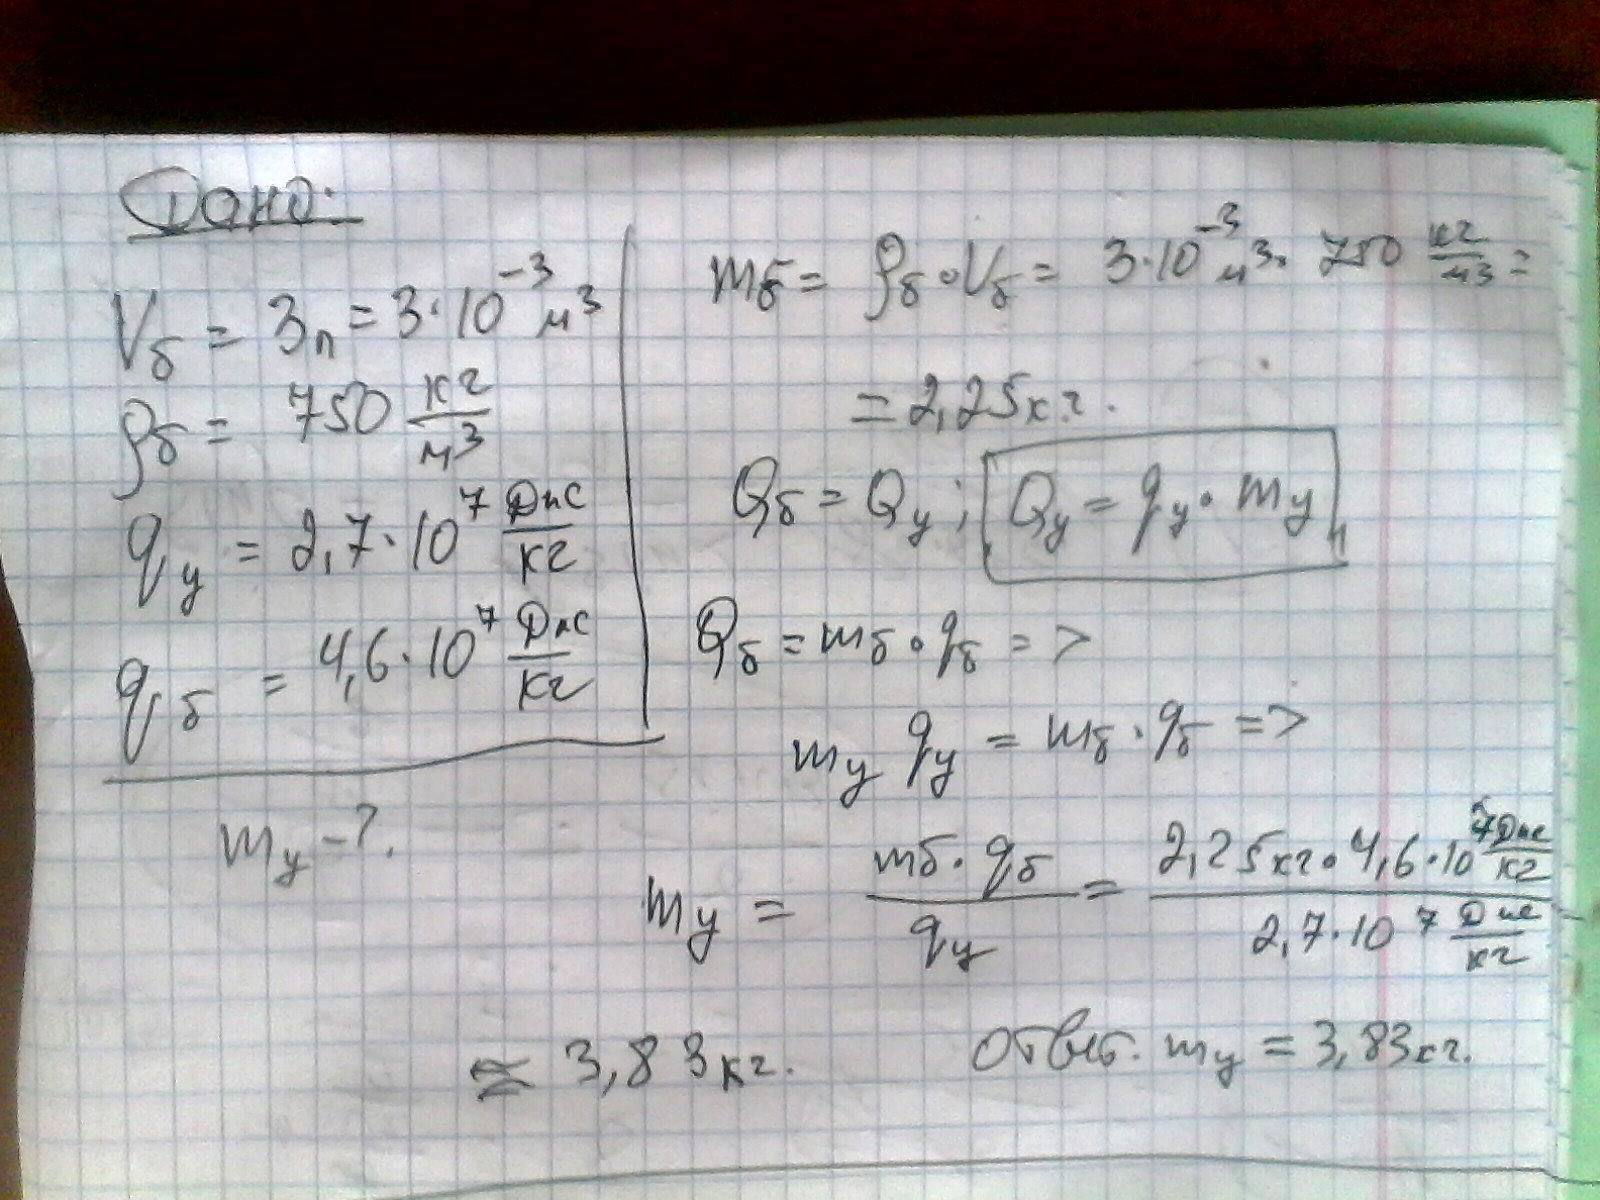 Дано:
Vб = 3л = 3·10⁻³ м³
ρб = 750 кг/м³
qу = 2,7·10⁷ Дж/кг
qб = 4,6·10⁷ Дж/кг
mу -?.
mб = ρб·Vб = 3·10⁻³ м³· 750 кг/м³ =
= 2,25кг.
Qб = Qу; Qу = qу·mу
Qб = mб·qб =>
mу qу = mб·qб =>
mу = mб·qб/qу = 2,25кг·4,6·10⁷ Дж/кг / 2,7·10⁷ Дж/кг
≈ 3,83кг.
Ответ. mу = 3,83кг.